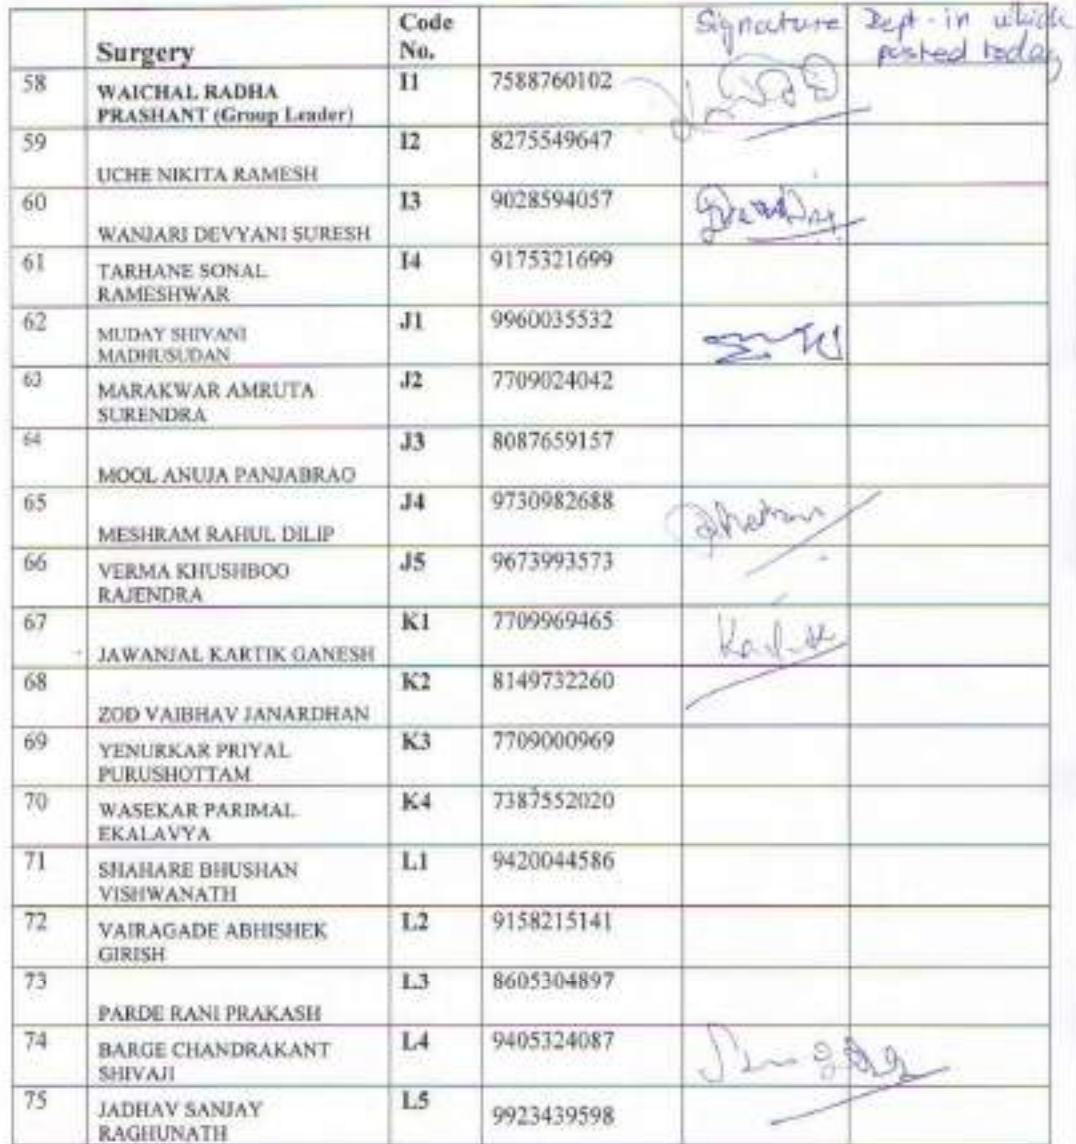 Surgery Code No. Signature Dept-in which posted today
58 WAICHAL RADHA PRASHANT (Group Leader) I1 7588760102
59 UCHE NIKITA RAMESH I2 8275549647
60 WANJARI DEVYANI SURESH I3 9028594057
61 TARHANE SONAL RAMESHWAR I4 9175321699
62 MUDAY SHIVANI MADHUSUDAN J1 9960035532
63 MARAKWAR AMRUTA SURENDRA J2 7709024042
64 MOOL ANUJA PANJABRAO J3 8087659157
65 MESHRAM RAHUL DILIP J4 9730982688
66 VERMA KHUSHBOO RAJENDRA J5 9673993573
67 JAWANJAL KARTIK GANESH K1 7709969465
68 ZOD VAIBHAV JANARDHAN K2 8149732260
69 YENURKAR PRIYAL PURUSHOTTAM K3 7709000969
70 WASEKAR PARIMAL EKALAVYA K4 7387552020
71 SHAHARE BHUSHAN VISHWANATH L1 9420044586
72 VAIRAGADE ABHISHEK GIRISH L2 9158215141
73 PARDE RANI PRAKASH L3 8605304897
74 BARGE CHANDRAKANT SHIVAJI L4 9405324087
75 JADHAV SANJAY RAGHUNATH L5 9923439598